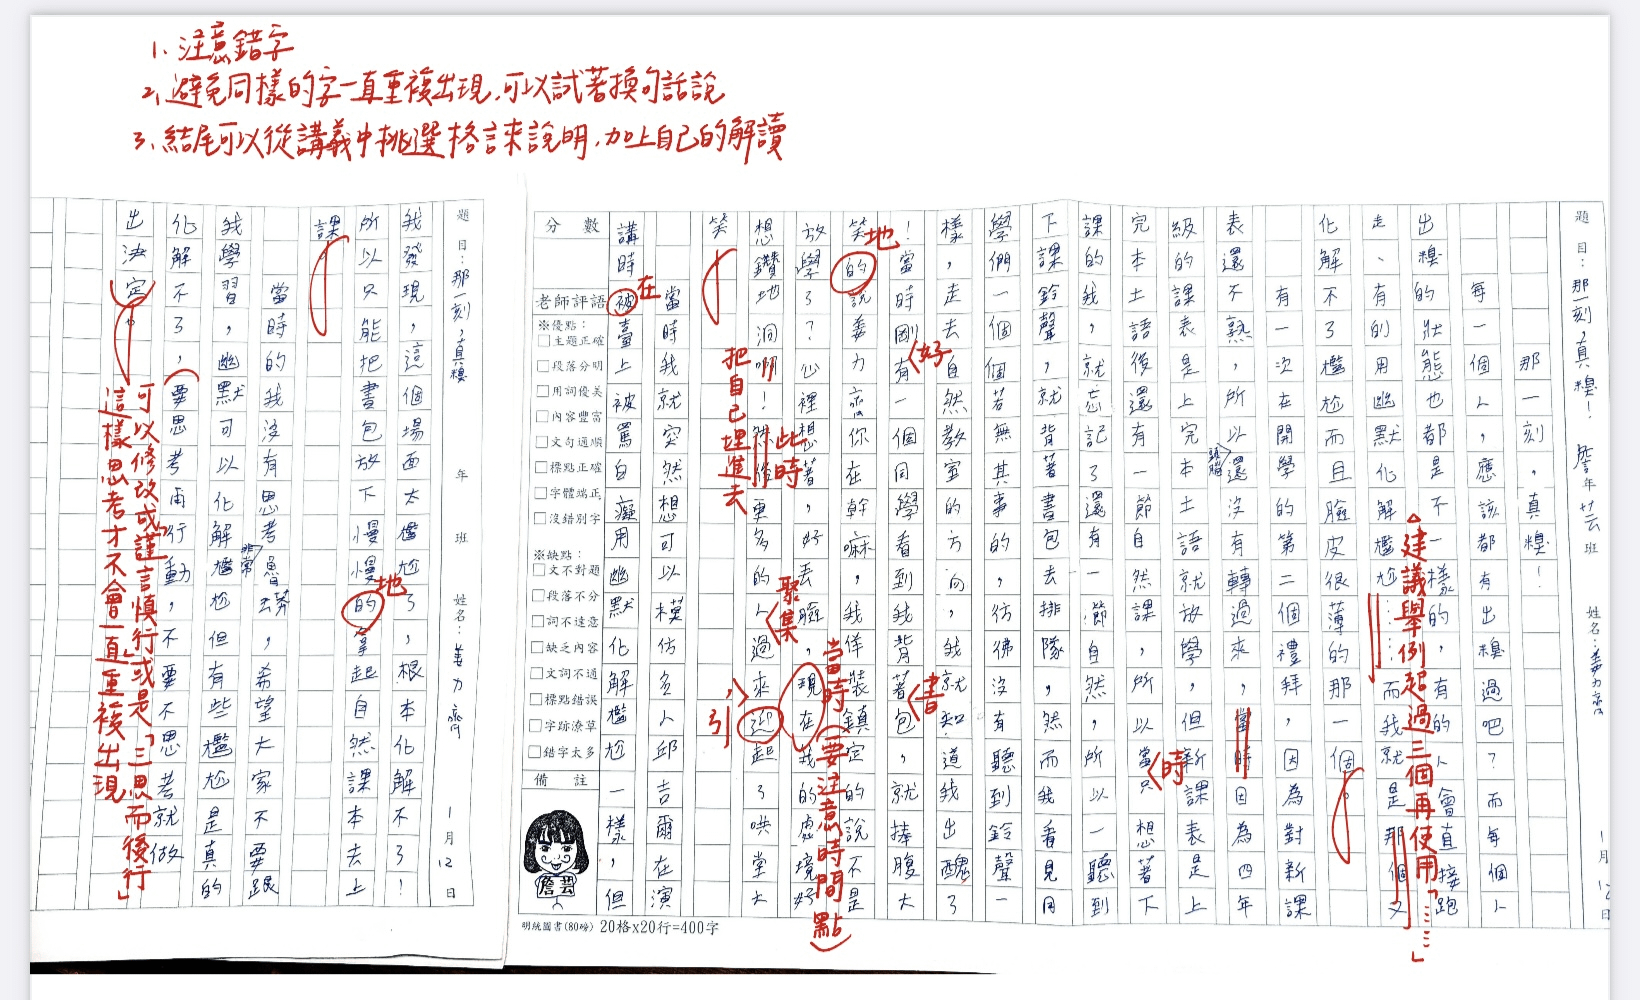 1. 注意錯字
2. 避免同樣的字一直重複出現,可以試著換句話說
3. 結尾可以從講義中挑選格言來說明,加上自己的解讀
題目:那一刻,真糗! 年 班 姓名: 1月12日
那一刻,真糗!
每一個人應該都有出糗過吧?而每個人
出糗的狀態也都是不一樣的,有的人會直接跑
走、有的用幽默化解尷尬……而我就是那個又
化解不了尷尬而且臉皮很薄的那一個。
有一次在開學的第二個禮拜,因為對新課
表還不熟,所以還沒有轉過來,當時因為四年
級的課表是上完本土語就放學,但新課表是上
完本土語後還有一節自然課,所以當只想著下
課的我,就忘記了還有一節自然,所以一聽到
下課鈴聲,就背著書包去排隊,然而我看見同
學們一個個若無其事的,彷彿沒有聽到鈴聲一
樣,走去自然教室的方向,我就知道我出醜了
!當時剛有一個同學看到我背著包,就捧腹大
笑的說姜力齊你在幹嘛,我佯裝鎮定的說不是
放學了?心裡想著,好丟臉,現在我的處境好
想鑽地洞啊!然後更多的人過來迎起了哄堂大
笑
當時我就突然想可以模仿名人邱吉爾在演
講時被臺上被罵白癡用幽默化解尷尬一樣,但
地
好
此時
把自己埋進去
聚集
書
引
在
當時(要注意時間點)
時
△建議舉例超過三個再使用「……」
分 數
老師評語
※優點:
□主題正確
□段落分明
□用詞優美
□內容豐富
□文句通順
□標點正確
□字體端正
□沒錯別字
※缺點:
□文不對題
□段落不分
□詞不達意
□缺乏內容
□文詞不通
□標點錯誤
□字跡潦草
□錯字太多
備 註
詹芸
明統圖書(80磅) 20格x20行=400字
題目:那一刻,真糗 年 班 姓名:姜力齊 1月12日
我發現,這個場面太尷尬了,根本化解不了!
所以只能把書包放下慢慢的拿起自然課本去上
課
當時的我沒有思考非常魯莽,希望大家不要跟
我學習,幽默可以化解尷尬但有些尷尬是真的
化解不了,要思考再行動,不要不思考就做
出決定。
地
可以修改成「謹言慎行」或是「三思而後行」
這樣思考才不會一直重複出現